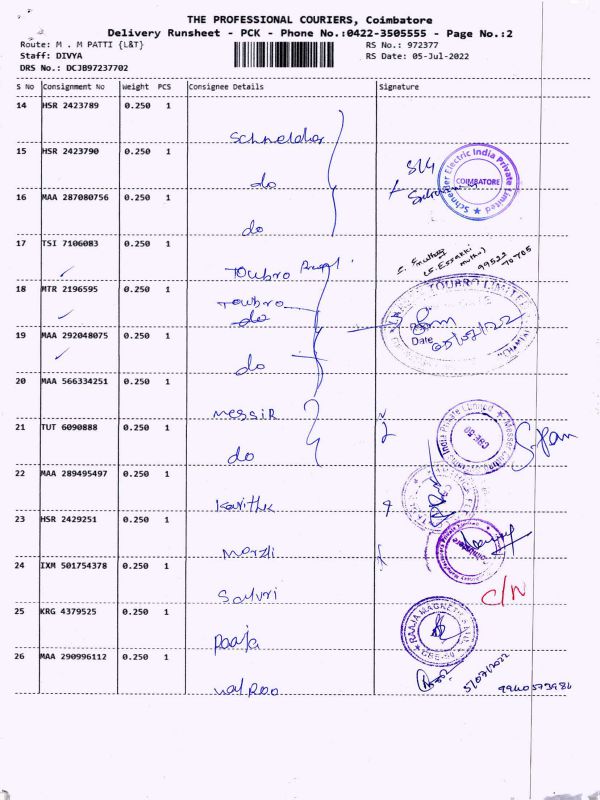 THE PROFESSIONAL COURIERS, Coimbatore
Delivery Runsheet - PCK - Phone No.:0422-3505555 - Page No.:2
Route: M . M PATTI {L&T} RS No.: 972377
Staff: DIVYA RS Date: 05-Jul-2022
DRS No.: DCJB97237702
S No Consignment No Weight PCS Consignee Details Signature
14 HSR 2423789 0.250 1
Schneider
15 HSR 2423790 0.250 1
do
Schneider Electric India Private Limited
COIMBATORE
16 MAA 287080756 0.250 1
do
17 TSI 7106083 0.250 1
Toubro
99522 70705
18 MTR 2196595 0.250 1
Toubro
do
TOUBRO LIMITED
Date 05/07/22
19 MAA 292048075 0.250 1
do
20 MAA 566334251 0.250 1
messir
21 TUT 6090888 0.250 1
do
India Private Limited
CBE-50
22 MAA 289495497 0.250 1
Kavithk
23 HSR 2429251 0.250 1
24 IXM 501754378 0.250 1
C/N
25 KRG 4379525 0.250 1
Raaja
RAAJA MAGNETICS
CBE-50
26 MAA 290996112 0.250 1
5/07/2022